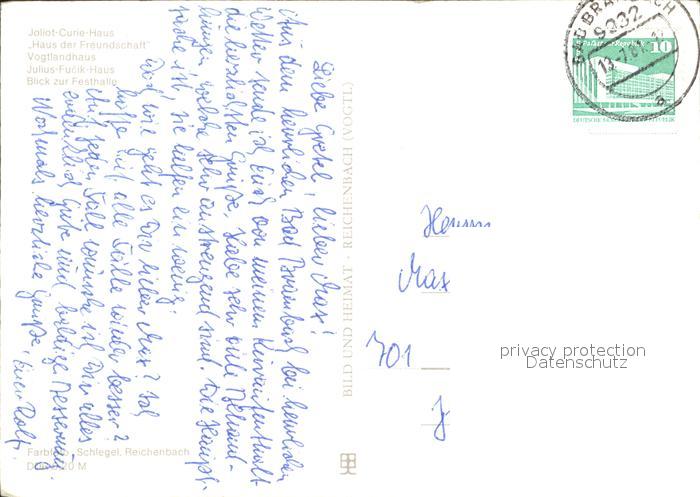 Joliot-Curie-Haus
"Haus der Freundschaft"
Vogtlandhaus
Julius-Fučik-Haus
Blick zur Festhalle
Liebe Gretel, lieber Max!
Aus dem herrlichen Bad Brambach bei herrlichem
Wetter sende ich Euch von meinem Kuraufenthalt
die herzlichsten Grüße. Habe sehr viele Behand-
lungen, welche sehr anstrengend sind. Die Haupt-
sache ist, sie helfen ein wenig.
Und wie geht es Dir lieber Max? Ich
hoffe mit alle Fälle wieder besser?
Auf jeden Fall wünsche ich Dir alles
Gute und baldige Besserung.
Nochmals herzliche Grüße, Euer Rolf.
Farbfoto: Schlegel, Reichenbach
BILD UND HEIMAT · REICHENBACH (VOGTL)
BAD BRAMBACH
9932
10
DEUTSCHE DEMOKRATISCHE REPUBLIK
Herrn
Max
701
privacy protection
Datenschutz